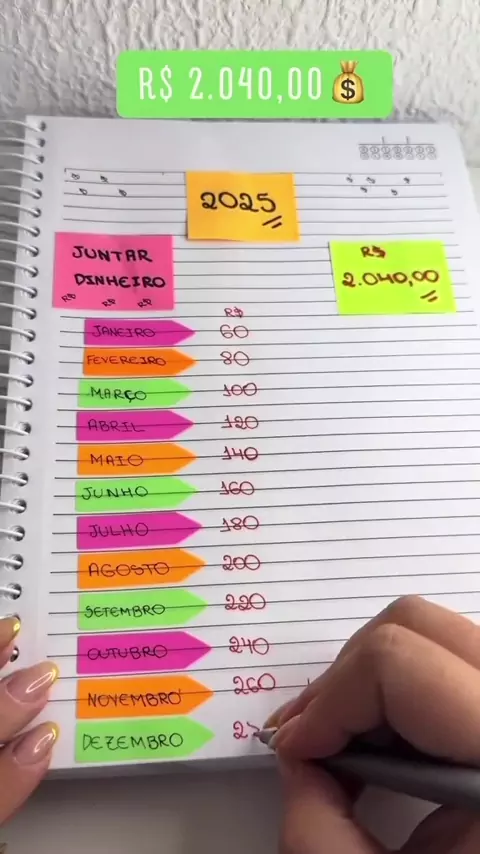 R$ 2.040,00💰
2025
JUNTAR
DINHEIRO
R$ R$ R$
R$
2.040,00
R$
JANEIRO 60
FEVEREIRO 80
MARÇO 100
ABRIL 120
MAIO 140
JUNHO 160
JULHO 180
AGOSTO 200
SETEMBRO 220
OUTUBRO 240
NOVEMBRO 260
DEZEMBRO